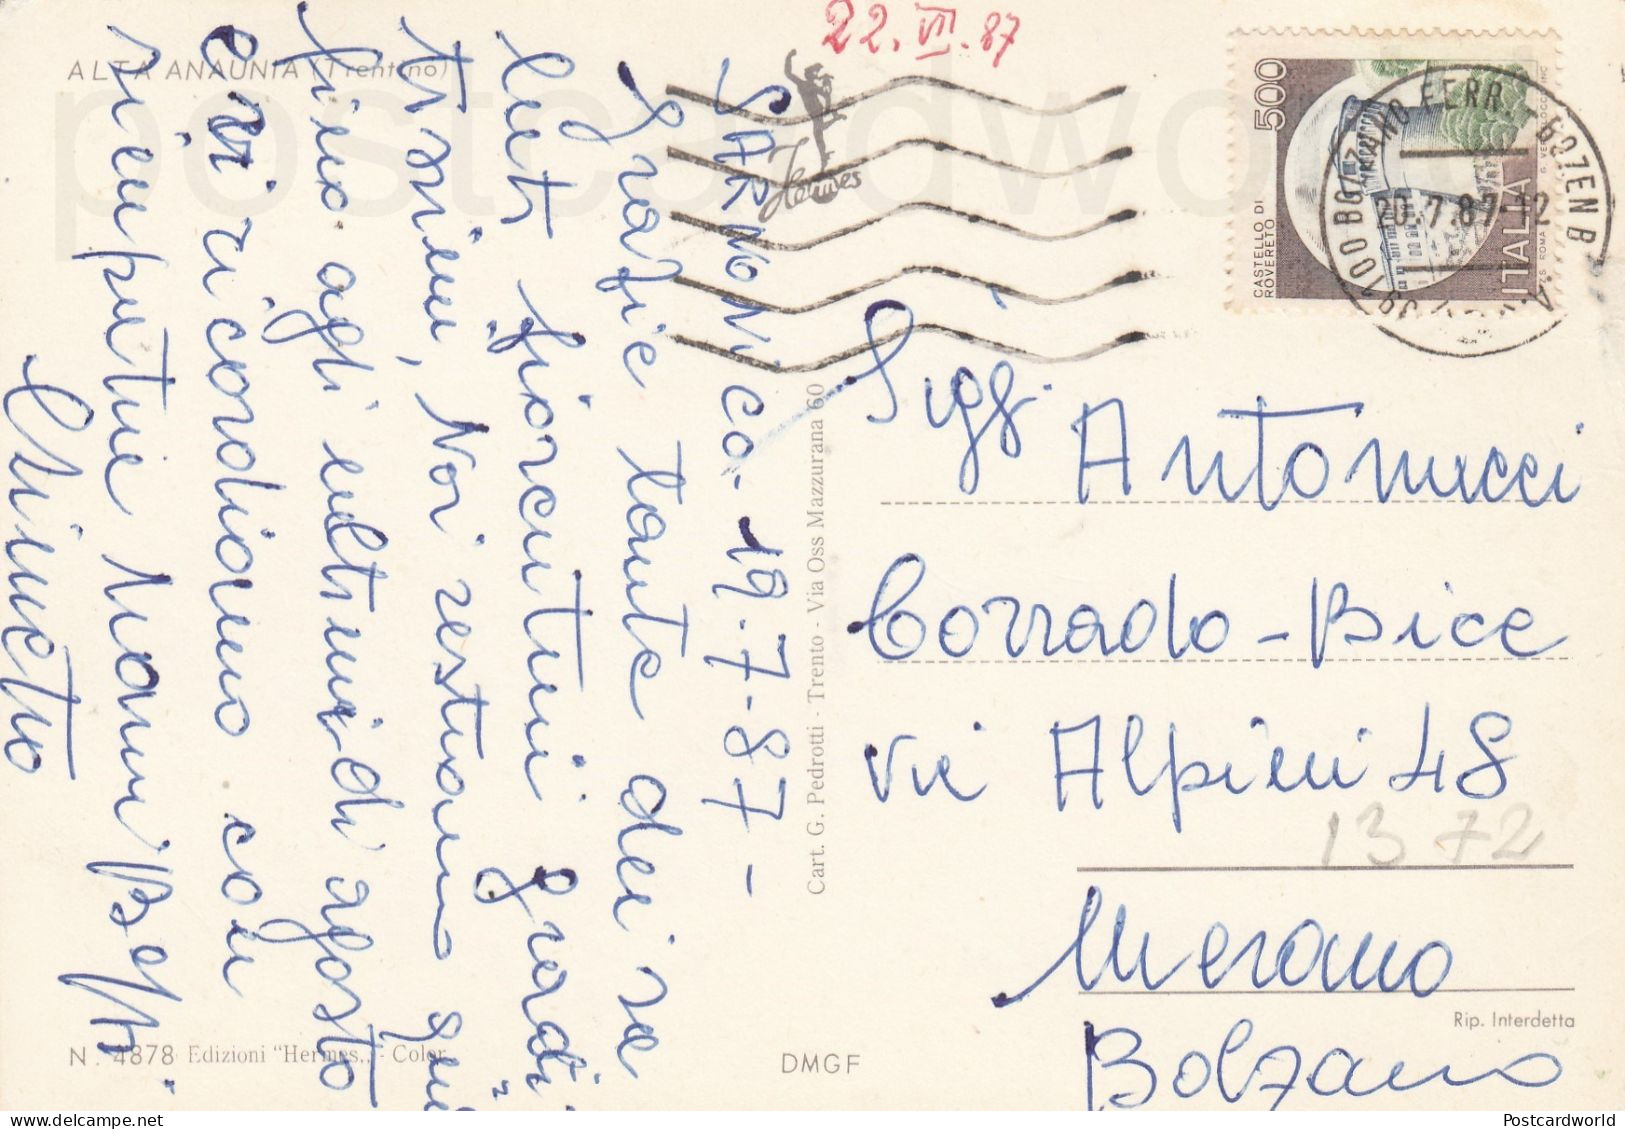 22. VII. 87
ALTA ANAUNIA (Trentino)
Hermes
500
CASTELLO DI
ROVERETO
ITALIA
39100 BOLZANO FERR. - BOZEN B
20.7.87-12
SARNONICO. 19-7-87-
Grazie tante dei sa
luti fiorentini gradi
tissimi, Noi restiamo qui
fino agli ultimi di agosto
e vi ricordiamo con
simpatia
Sigg. Antonucci
Corrado - Bice
via Alpini 48
1372
Merano
Bolzano
Cart. G. Pedrotti - Trento - Via Oss Mazzurana 60
Rip. Interdetta
N. 4878 Edizioni "Hermes" - Color
DMGF
postcardworld
Postcardworld